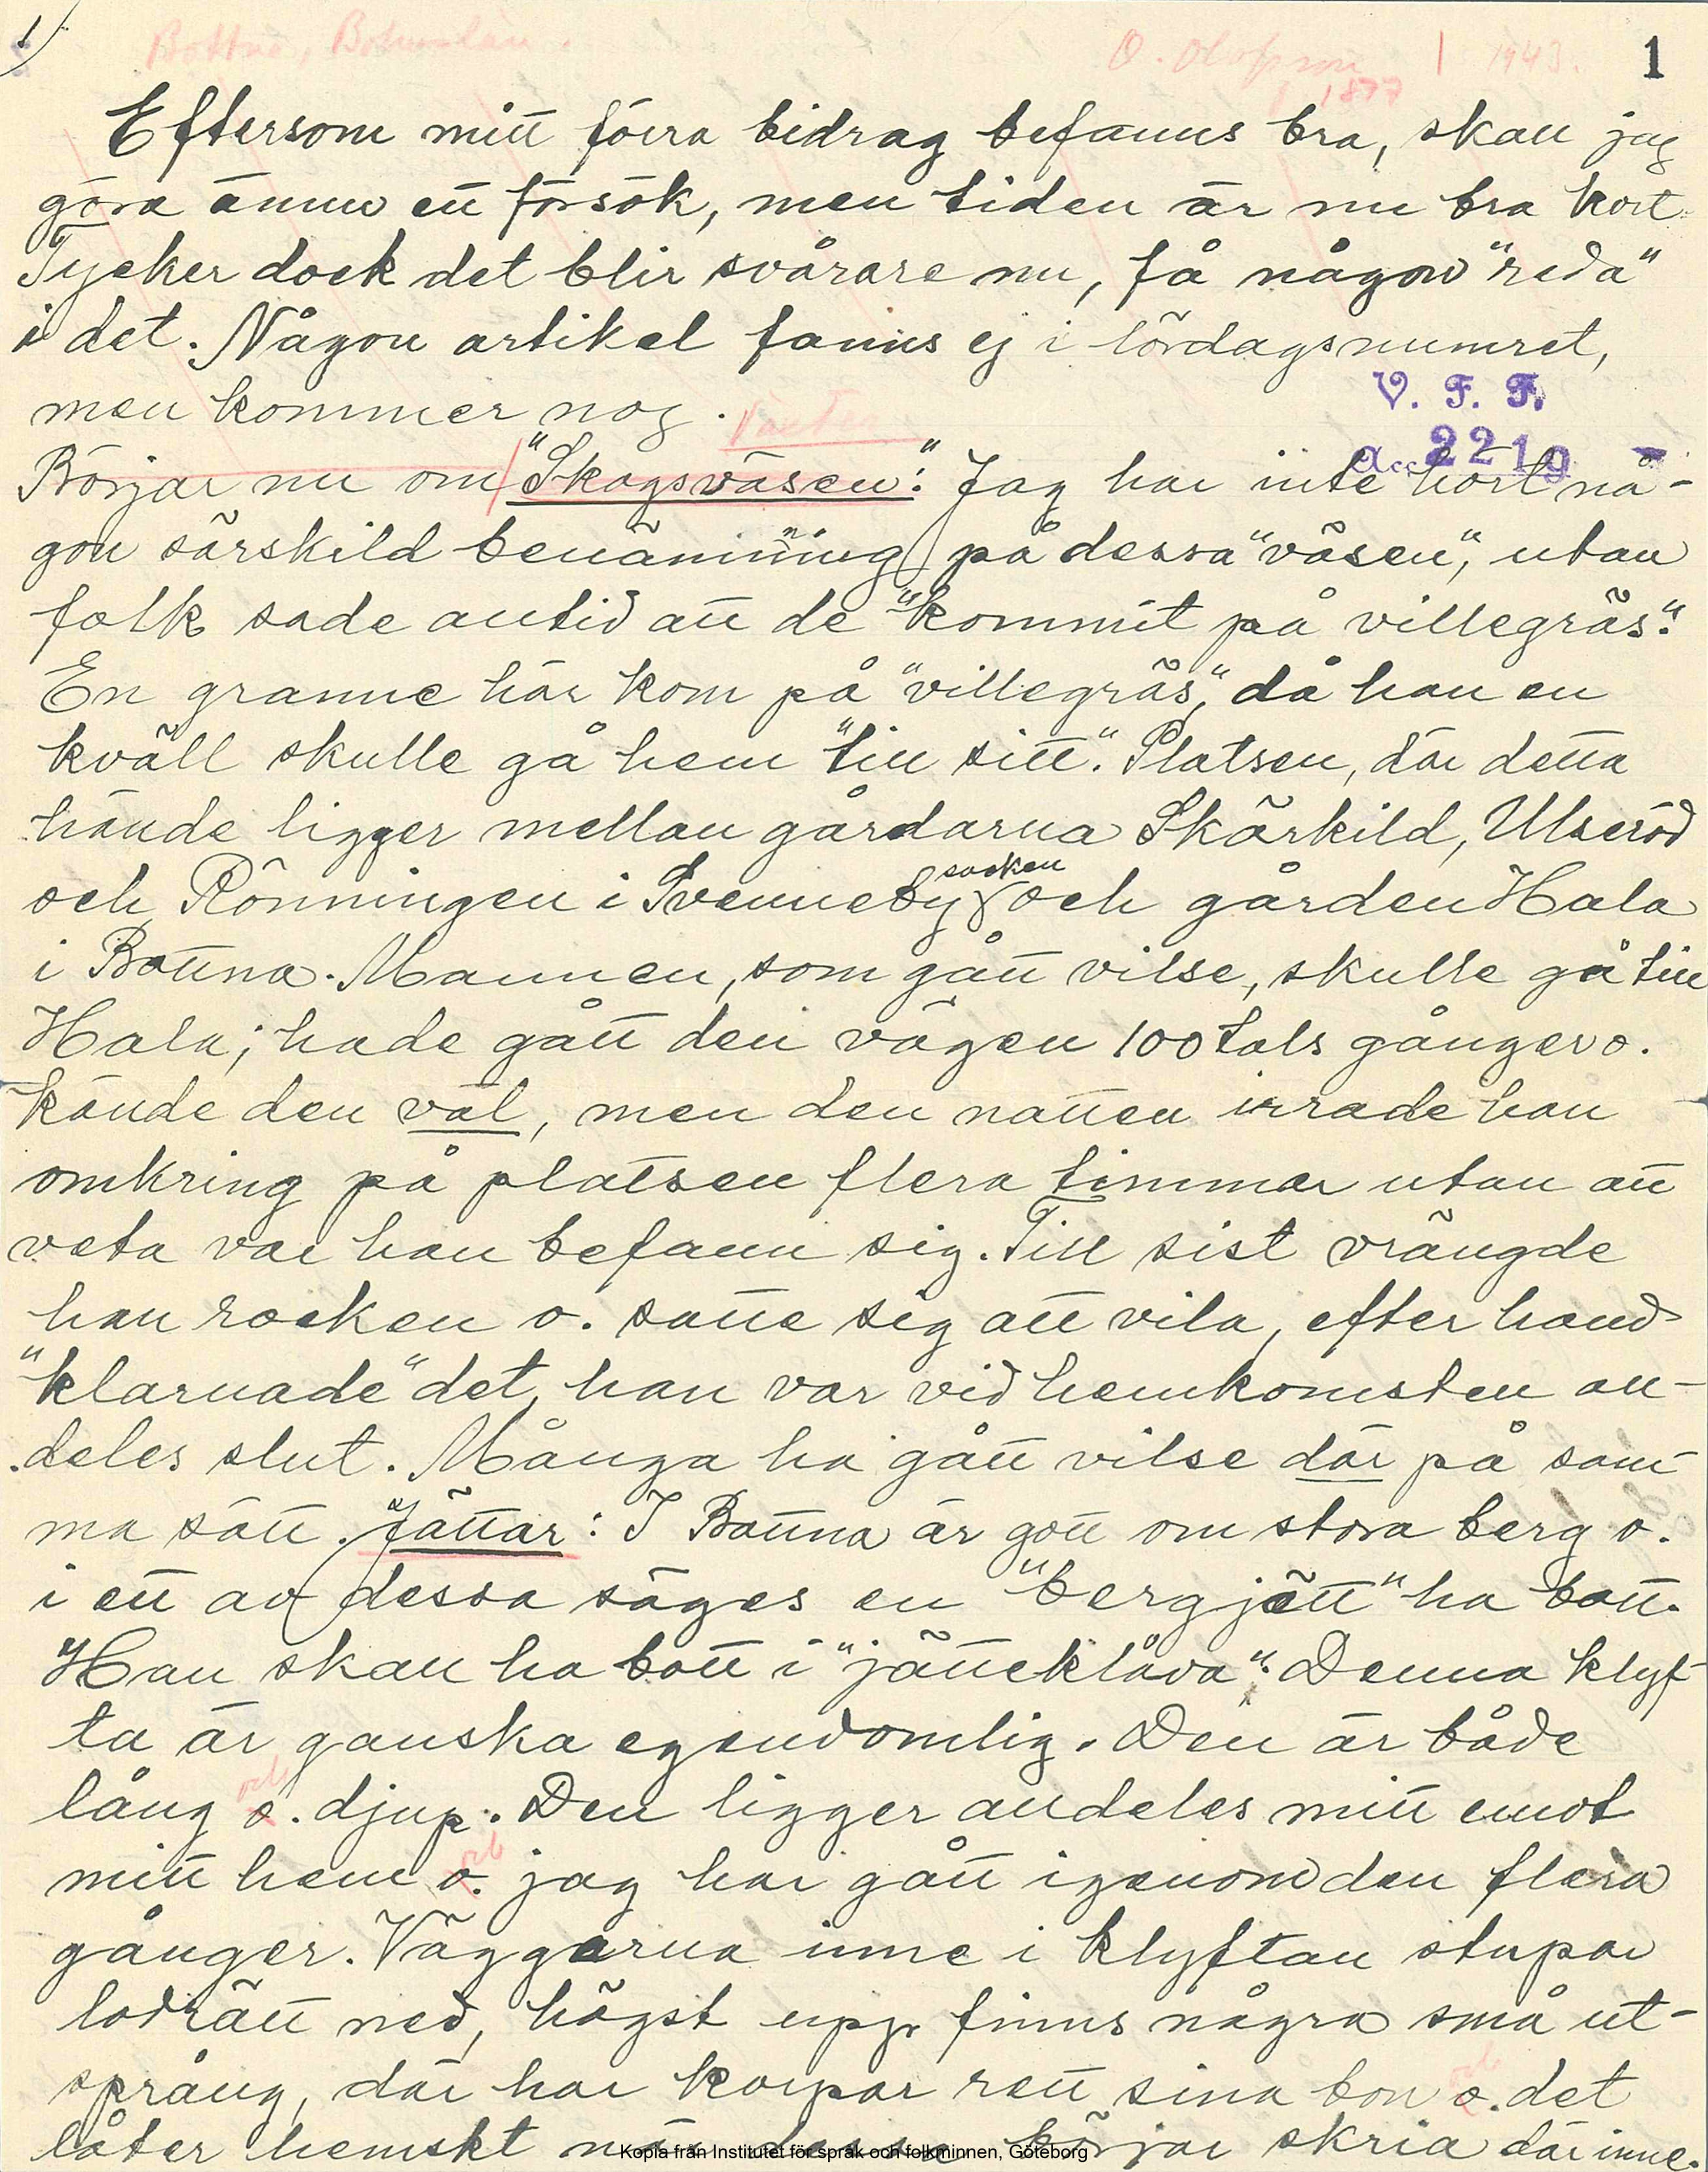 1)
Bottna, Bohuslän.
O. Olofsson 1943.
1
1877
Eftersom mitt förra bidrag befanns bra, skall jag
göra ännu ett försök, men tiden är nu bra kort.
Tycker dock det blir svårare nu, få någon "reda"
i det. Någon artikel fanns ej i lördagsnumret,
men kommer nog.
V. F. F.
Acc 2219
Börjar nu om "Skogsväsen": Jag har inte hört nå-
gon särskild benämning på dessa "väsen", utan
folk sade alltid att de "kommit på villegräs".
En granne här kom på "villegräs", då han en
kväll skulle gå hem "till sitt". Platsen, där detta
hände ligger mellan gårdarna Skärkild, Ulseröd
och Rönningen i Svenneby socken och gården Hala
i Bottna. Mannen, som gått vilse, skulle gå till
Hala; hade gått den vägen 100 tals gånger o.
kände den väl, men den natten irrade han
omkring på platsen flera timmar utan att
veta var han befann sig. Till sist vrängde
han rocken o. satte sig att vila, efter hand
"klarnade" det, han var vid hemkomsten all-
deles slut. Många ha gått vilse där på sam-
ma sätt. Jättar: I Bottna är gott om stora berg o.
i ett av dessa säges en "bergjätt" ha bott.
Han skall ha bott i "jätteklåva". Denna klyf-
ta är ganska egendomlig. Den är både
lång o. djup. Den ligger alldeles mitt emot
och
mitt hem o. jag har gått igenom den flera
och
gånger. Väggarna inne i klyftan stupar
lodrätt ned, högst upp finns några små ut-
språng, där har korpar rett sina bon o. det
och
låter hemskt när dessa börjar skria där inne.
Kopia från Institutet för språk och folkminnen, Göteborg